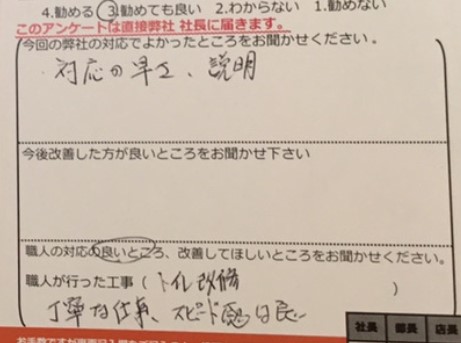 4.勧める ③.勧めても良い 2.わからない 1.勧めない
このアンケートは直接弊社 社長に届きます。
今回の弊社の対応でよかったところをお聞かせください。
対応の早さ、説明
今後改善した方が良いところをお聞かせ下さい
職人の対応の良いところ、改善してほしいところをお聞かせください。
職人が行った工事（ トイレ改修 ）
丁寧な仕事、スピード感は良い
社長 部長 店長